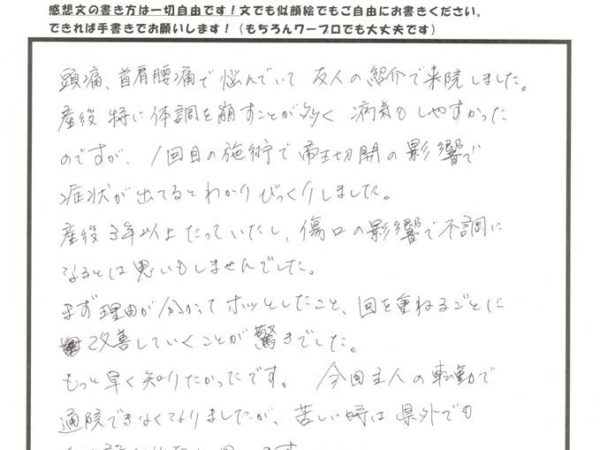 感想文の書き方は一切自由です！文でも似顔絵でもご自由にお書きください。
できれば手書きでお願いします！（もちろんワープロでも大丈夫です）
頭痛、首肩腰痛で悩んでいて 友人の紹介で来院しました。
産後 特に体調を崩すことが多く 病気もしやすかった
のですが、1回目の施術で帝王切開の影響で
症状が出てるとわかりびっくりしました。
産後3年以上たっていたし、傷口の影響で不調に
なるとは思いもしませんでした。
まず理由が分かってホッとしたこと、回を重ねるごとに
改善していくことが驚きでした。
もっと早く知りたかったです。 今回主人の転勤で
通院できなくなりましたが、苦しい時は県外でも